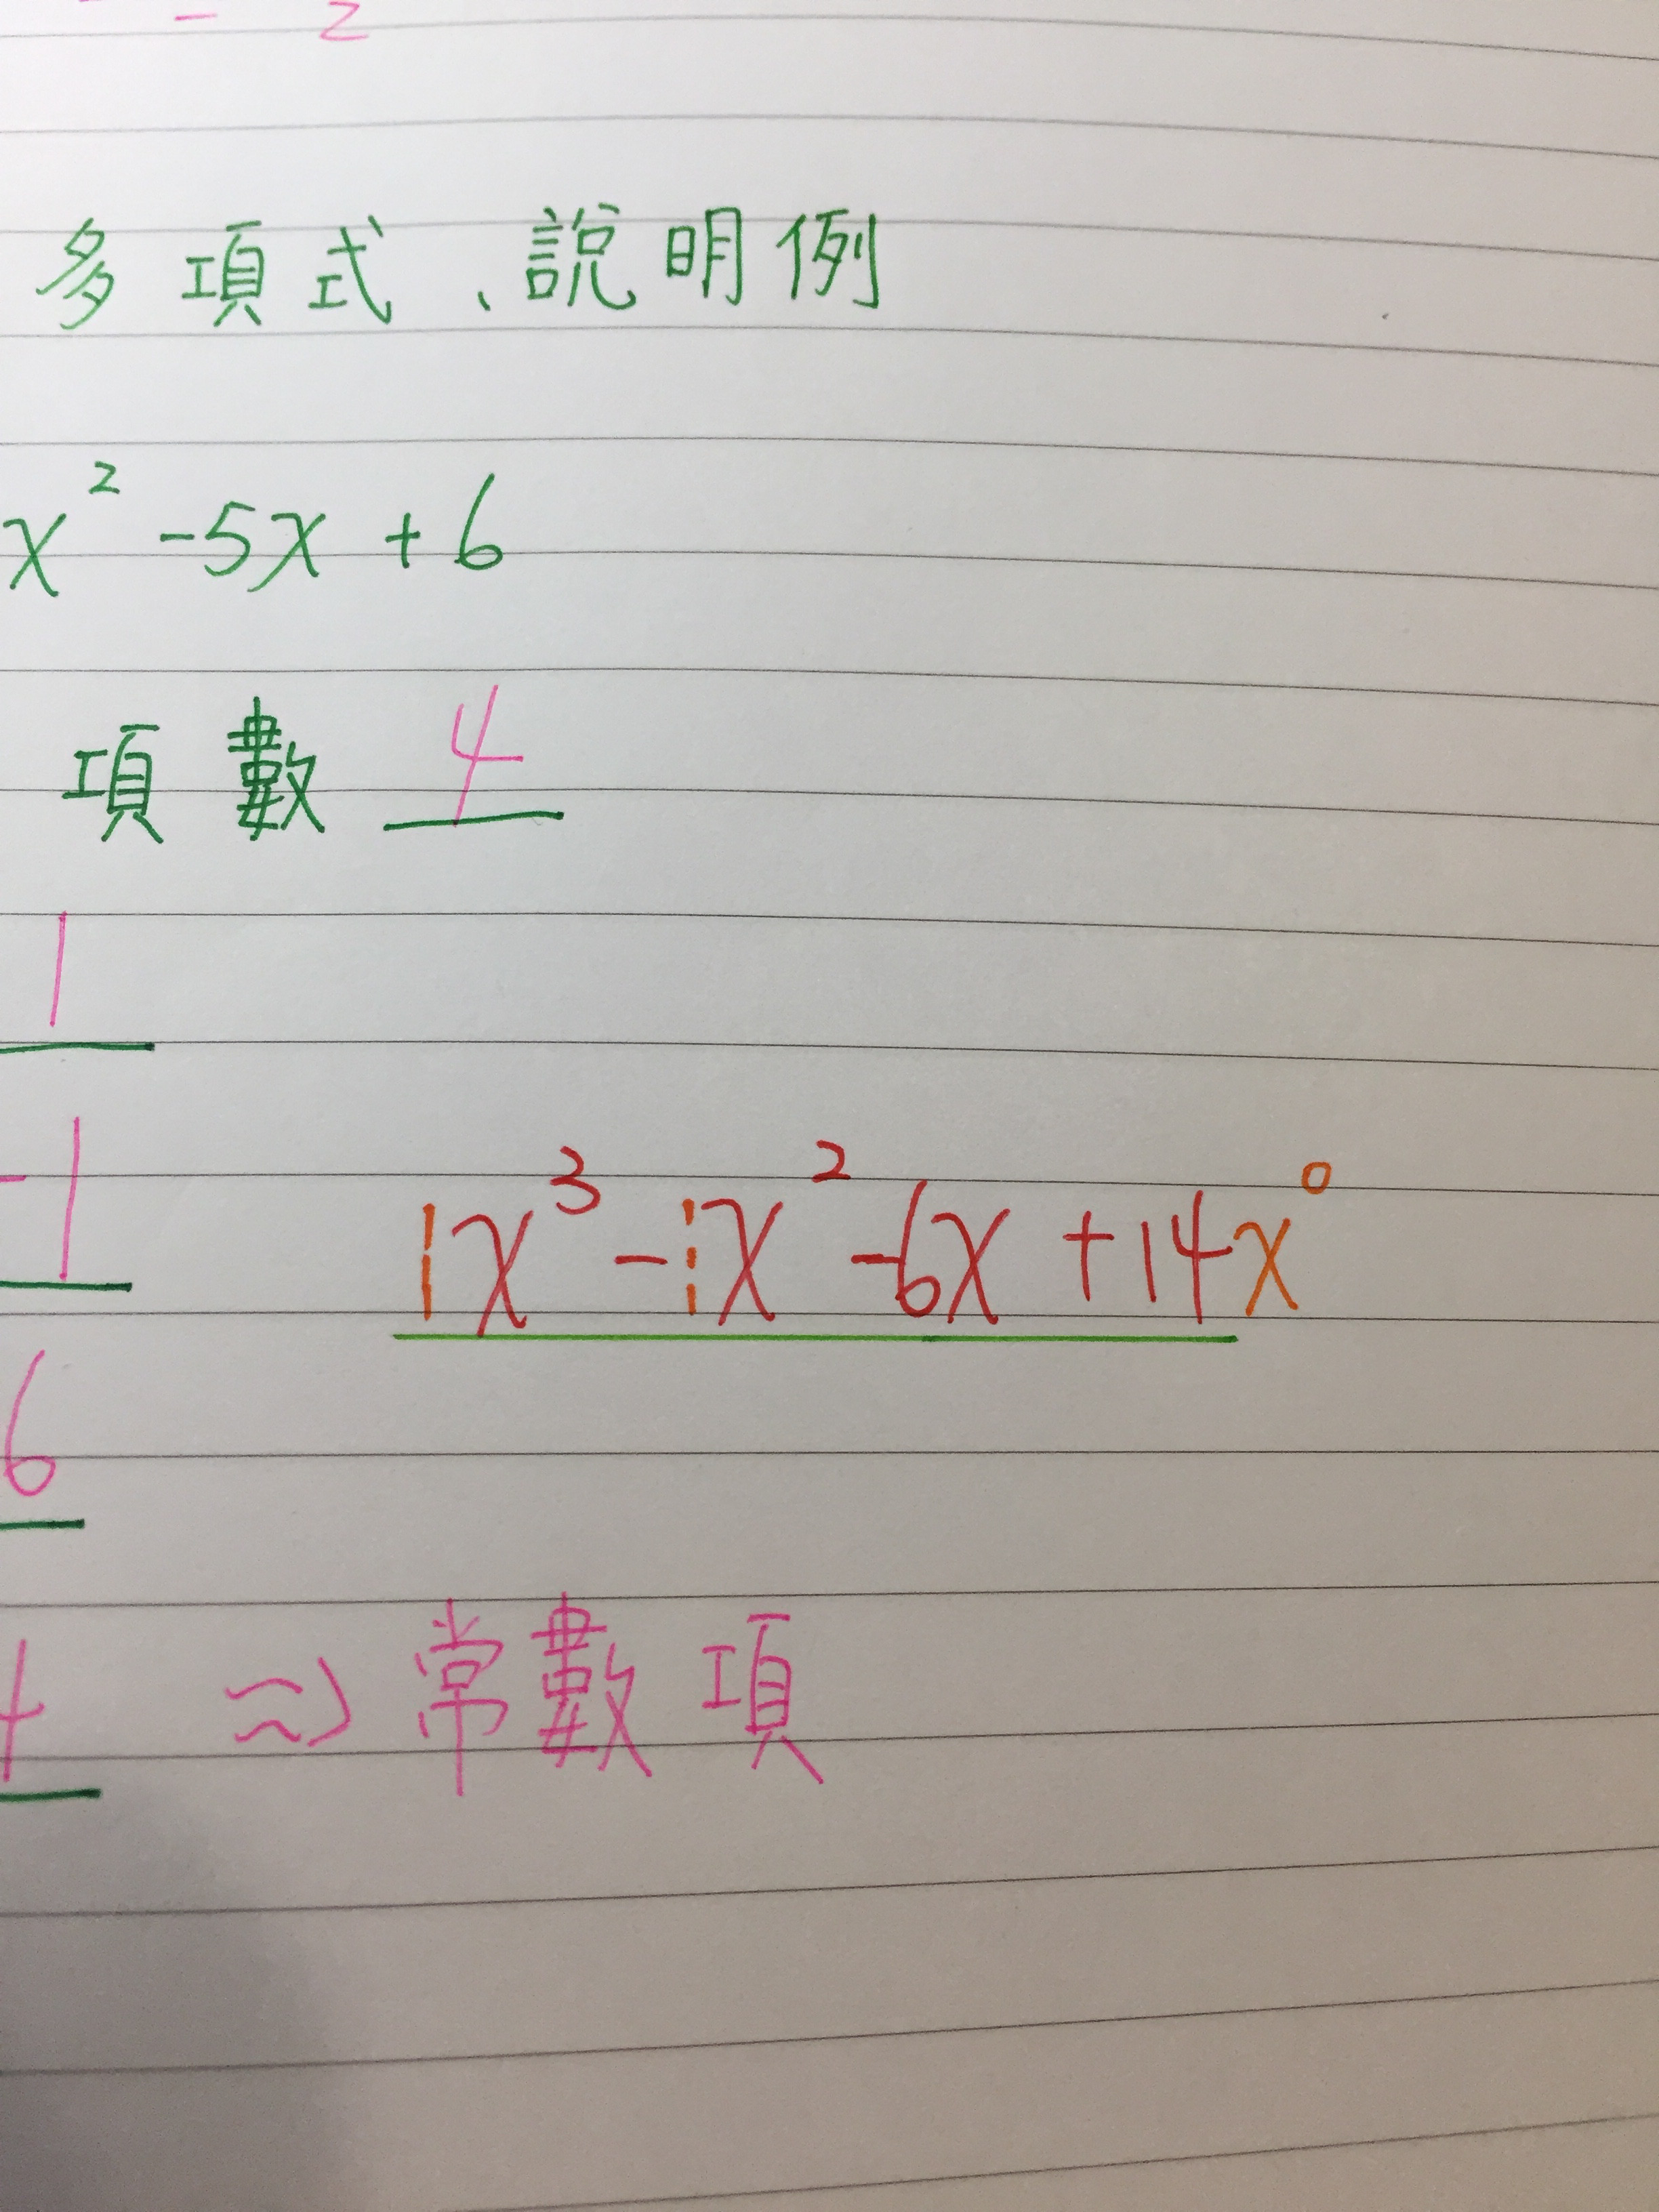 - 2
多項式、說明例
x² -5x +6
項數 4
1
-1
1x³ -1x² -6x +14x⁰
6
⇒ 常數項